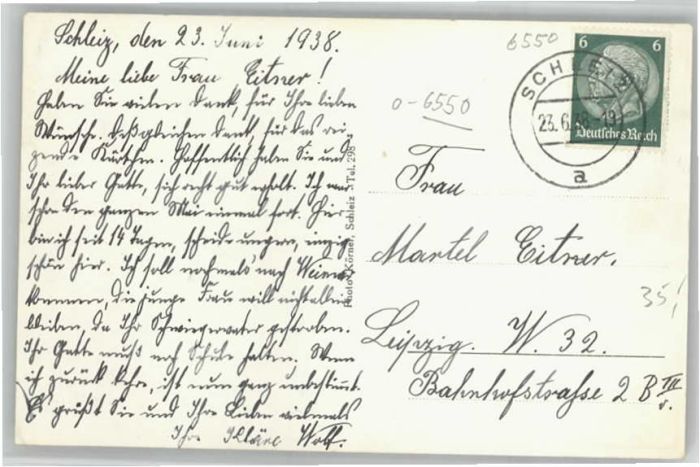 Schleiz, den 23. Juni 1938.
Meine liebe Frau Eitner!
Haben Sie vielen Dank, für Ihre lieben
Wünsche. Desgleichen Dank, für das rei-
zende Kärtchen. Hoffentlich haben Sie und
Ihr lieber Gatte, sich recht gut erholt. Ich war
schon den ganzen Mai einmal fort. Hier
bin ich seit 14 Tagen,
schön hier. Ich soll nochmals nach Weimar
kommen, die junge Frau will nicht allein
bleiben, da Ihr Schwiegervater gestorben.
Ihr Gatte muß noch Schule halten. Wann
ich zurück kehre, ist nun ganz unbestimmt.
Es grüßt Sie und Ihre Lieben vielmals
Ihre Kläre Wolf.
Photo: Körner, Schleiz Tel. 298
6550
o-6550
6 6
Deutsches Reich
SCHLEIZ
23.6.38.-19
a
Frau
Martel Eitner.
35,
Leipzig. W. 32.
Bahnhofstrasse 2 B III
r.